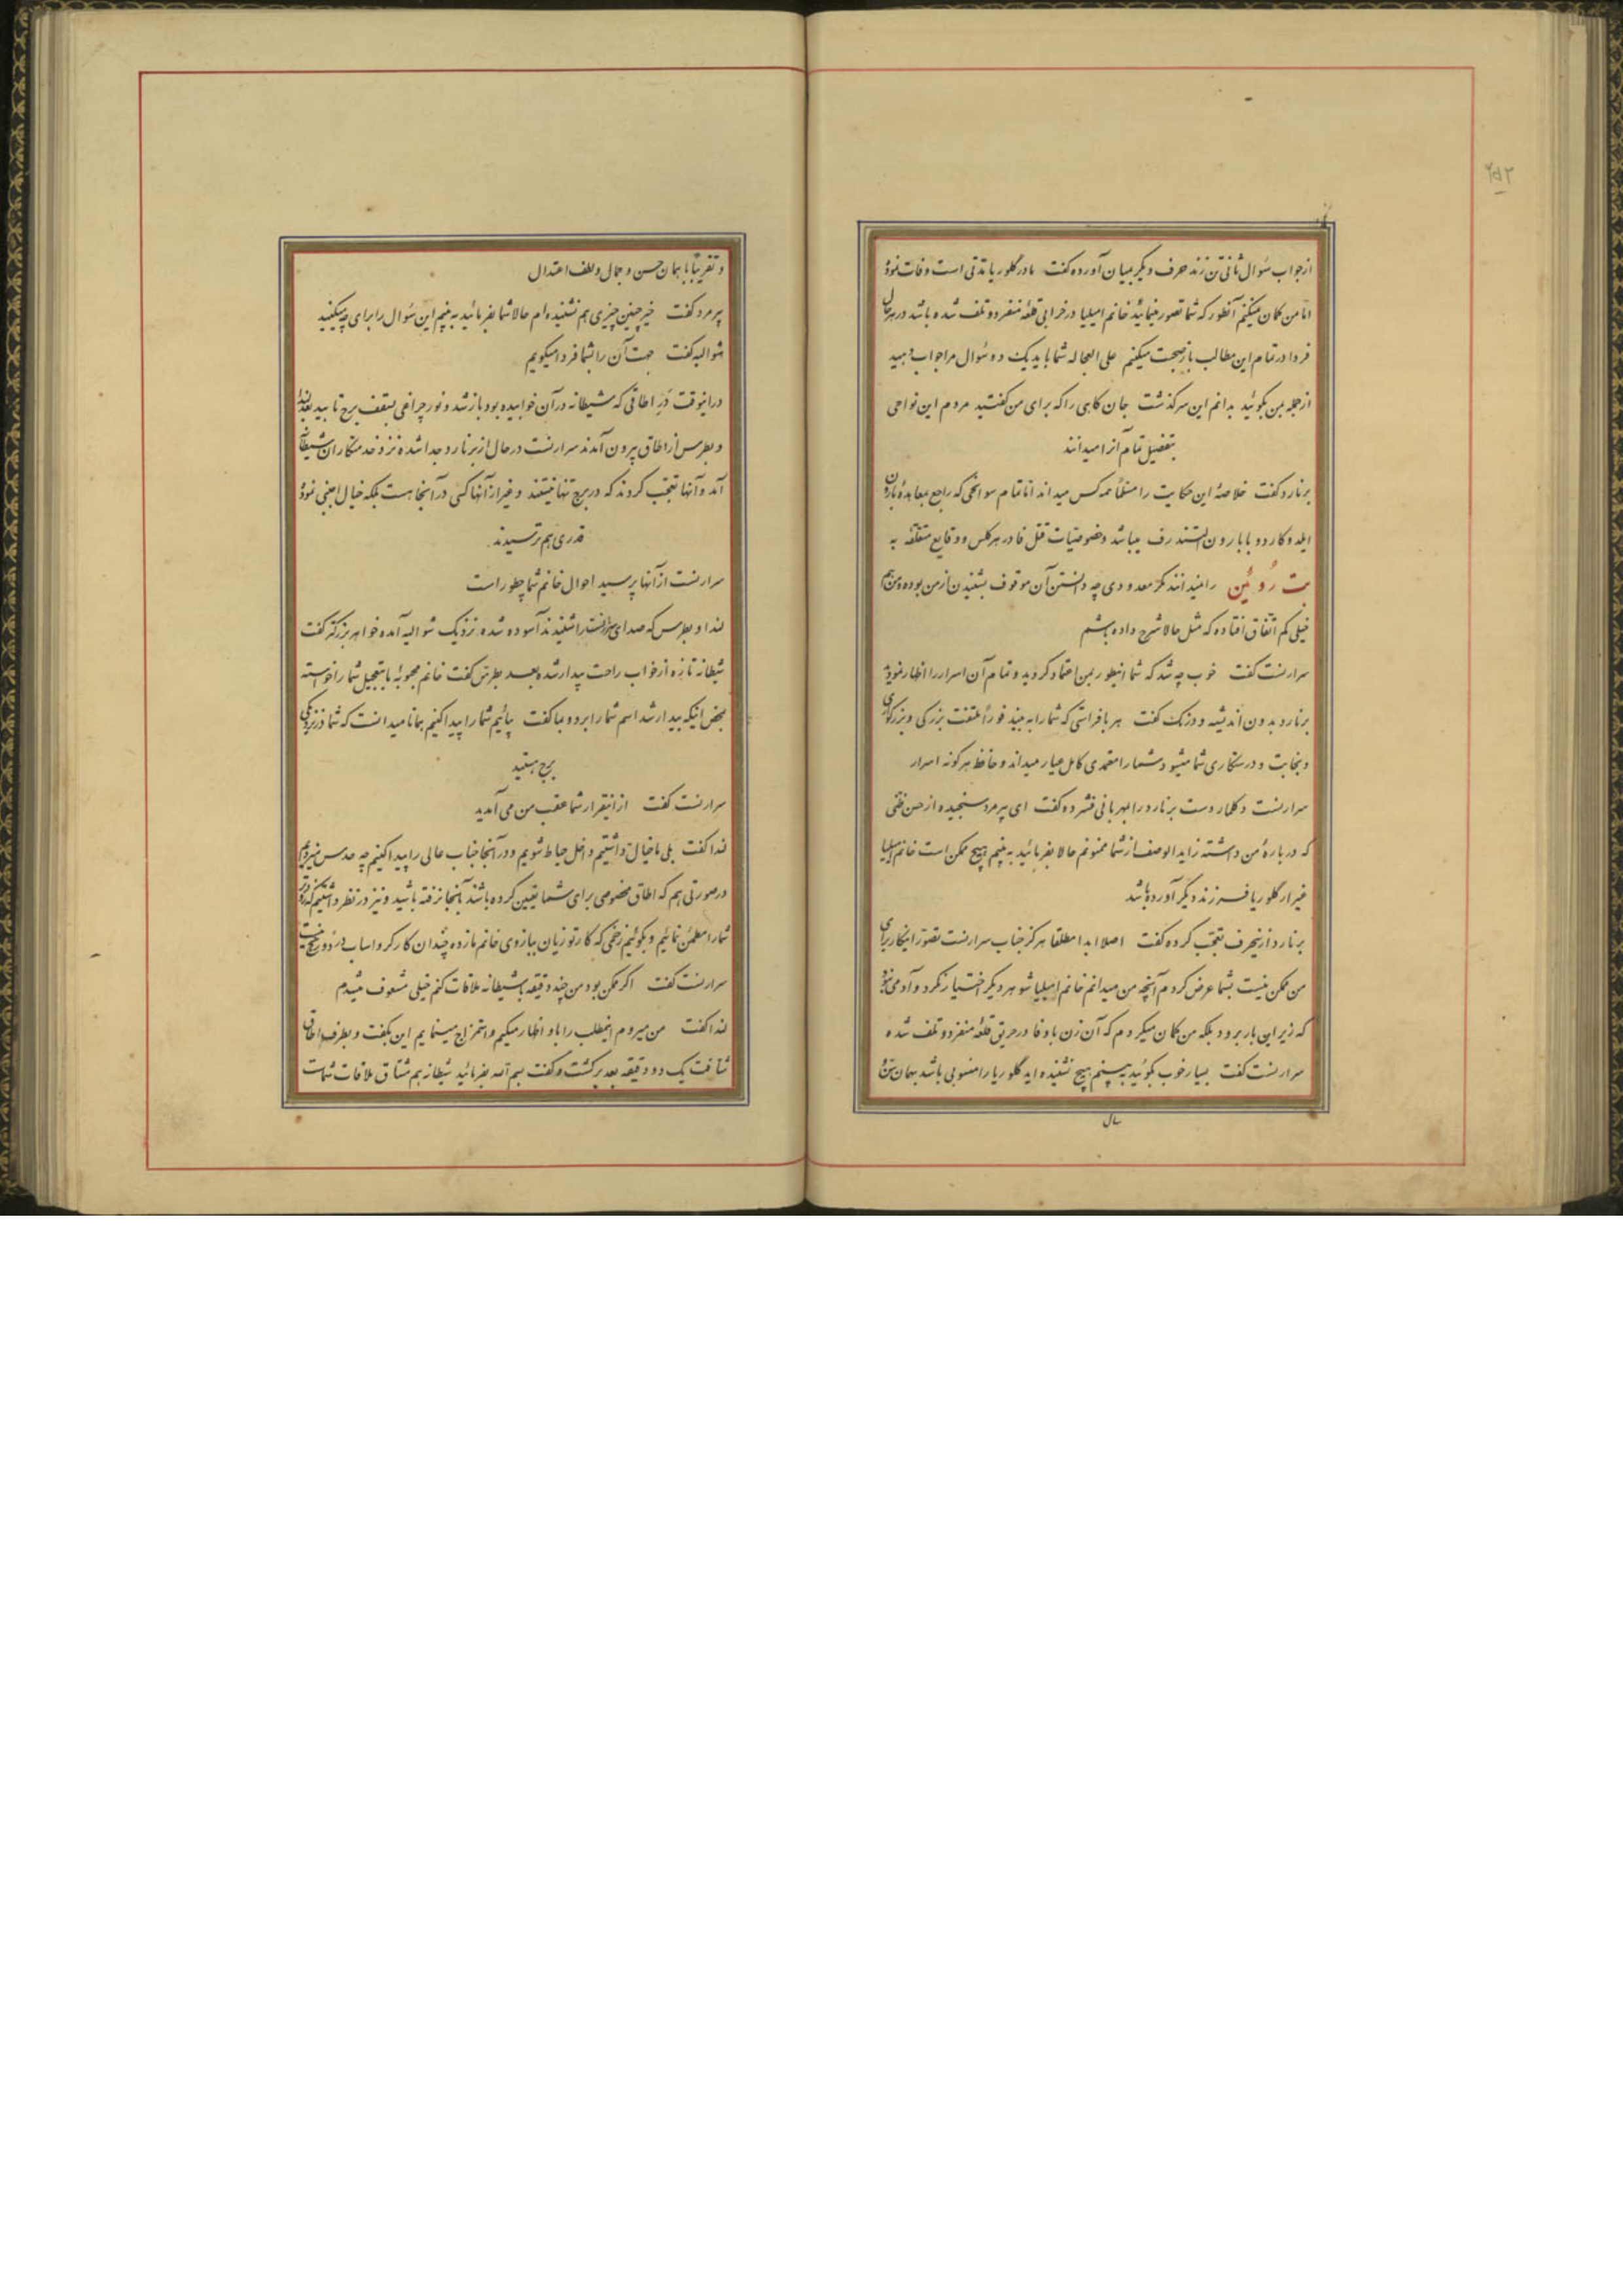 ۲۵۲
از جواب سئوال ثانی تن زند حرف دیگر بمیان آورده گفت مادر گلوریا مدتی است وفات نموده
اما من گمان میکنم آنطور که شما تصور مینمائید خانم امیلیا در خرابی قلعه منفرد و تلف شده باشد در هر حال
فردا در تمام این مطالب باز صحبت میکنیم علی العجاله شما باید یک دو سئوال مرا جواب دهید
از جمله بمن بگوئید بدانم این سرگذشت جان کاهی را که برای من گفتید مردم این نواحی
بتفصیل تمام آنرا میدانند
برنارد گفت خلاصهٔ این حکایت را مسلماً همه کس میداند اما تمام سوانحی که راجع بمعاهدهٔ بارون
ایلدوکاردو با بارون لستندرف میباشد وخصوصیات قتل فادر هرکلس ووقایع متعلقه به
بت رُوئین را نمیدانند مگر معدودی چه دانستن آن موقوف بشنیدن از من بوده و من هم
خیلی کم اتفاق افتاده که مثل حالا شرح داده باشم
سرارنست گفت خوب چه شد که شما اینطور بمن اعتماد کردید و تمام آن اسرار را اظهار نمودید
برنارد بدون اندیشه و درنگ گفت هر بافراستی که شما را به بیند فوراً ملتفت بزرگی و بزرگواری
و نجابت و درستکاری شما میشود و شما را معتمدی کامل عیار میداند و حافظ هر گونه اسرار
سرارنست دکلمار دست برنارد را بمهربانی فشرده گفت ای پیر مرد سنجیده از حسن ظنی
که دربارهٔ من داشته زایدالوصف از شما ممنونم حالا بفرمائید به بینم هیچ ممکن است خانم امیلیا
غیر از گلوریا فرزند دیگر آورده باشد
برنارد از اینحرف تعجب کرده گفت اصلا ابدا مطلقا هرگز جناب سرارنست تصور اینکار برای
من ممکن نیست بشما عرض کردم آنچه من میدانم خانم امیلیا شوهر دیگر اختیار نکرد و آدمی نبود
که زیر این بار برود بلکه من گمان میکردم که آن زن باوفا در حریق قلعهٔ منفرد و تلف شده
سرارنست گفت بسیار خوب بگوئید به بینم هیچ نشنیده اید گلوریا را منسوبی باشد بهمان سن
سال
و تقریباً با همان حسن و جمال و لطف اعتدال
پیر مرد گفت خیر چنین چیزی هم نشنیده ام حالا شما بفرمائید به بینم این سئوال را برای چه میکنید
شوالیه گفت جهت آن را بشما فردا میگویم
در اینوقت دَرِ اطاقی که شیطانه در آن خوابیده بود باز شد و نور چراغی بسقف برج تابید بعد لندا
و بطرس از اطاق بیرون آمدند سرارنست در حال از برنارد جدا شده نزد خدمتکاران شیطانه
آمد و آنها تعجب کردند که در برج تنها نیستند و غیر از آنها کسی در آنجا هست بلکه خیال اجنبی نموده
قدری هم ترسیدند
سرارنست از آنها پرسید احوال خانم شما چطور است
لندا و بطرس که صدای سرارنست را شنیدند آسوده شده نزدیک شوالیه آمده خواهر بزرگتر گفت
شیطانه تازه از خواب راحت بیدار شده بعد بطرس گفت خانم محبوبهٔ ما بتعجیل شما را خواسته
بمحض اینکه بیدار شد اسم شما را برد و بما گفت بیائیم شما را پیدا کنیم همانا میدانست که شما در نزدیکی
برج هستید
سرارنست گفت از اینقرار شما عقب من می آمدید
لندا گفت بلی ما خیال داشتیم داخل حیاط شویم و در آنجا جناب عالی را پیدا کنیم چه حدس میزدیم
در صورتی هم که اطاق مخصوصی برای شما تعیین کرده باشند بآنجا نرفته باشید و نیز در نظر داشتیم که زودتر
شما را مطمئن نمائیم و بگوئیم زخمی که کارتوزیان ببازوی خانم ما زده چندان کارگر و اسباب درد و رنج نیست
سرارنست گفت اگر ممکن بود من چند دقیقه با شیطانه ملاقات کنم خیلی مشعوف میشدم
لندا گفت من میروم اینمطلب را باو اظهار میکنم و استمزاج مینمایم این بگفت و بطرف اطاق
شتافت یک دو دقیقه بعد برگشت و گفت بسم الله بفرمائید شیطانه هم مشتاق ملاقات شماست